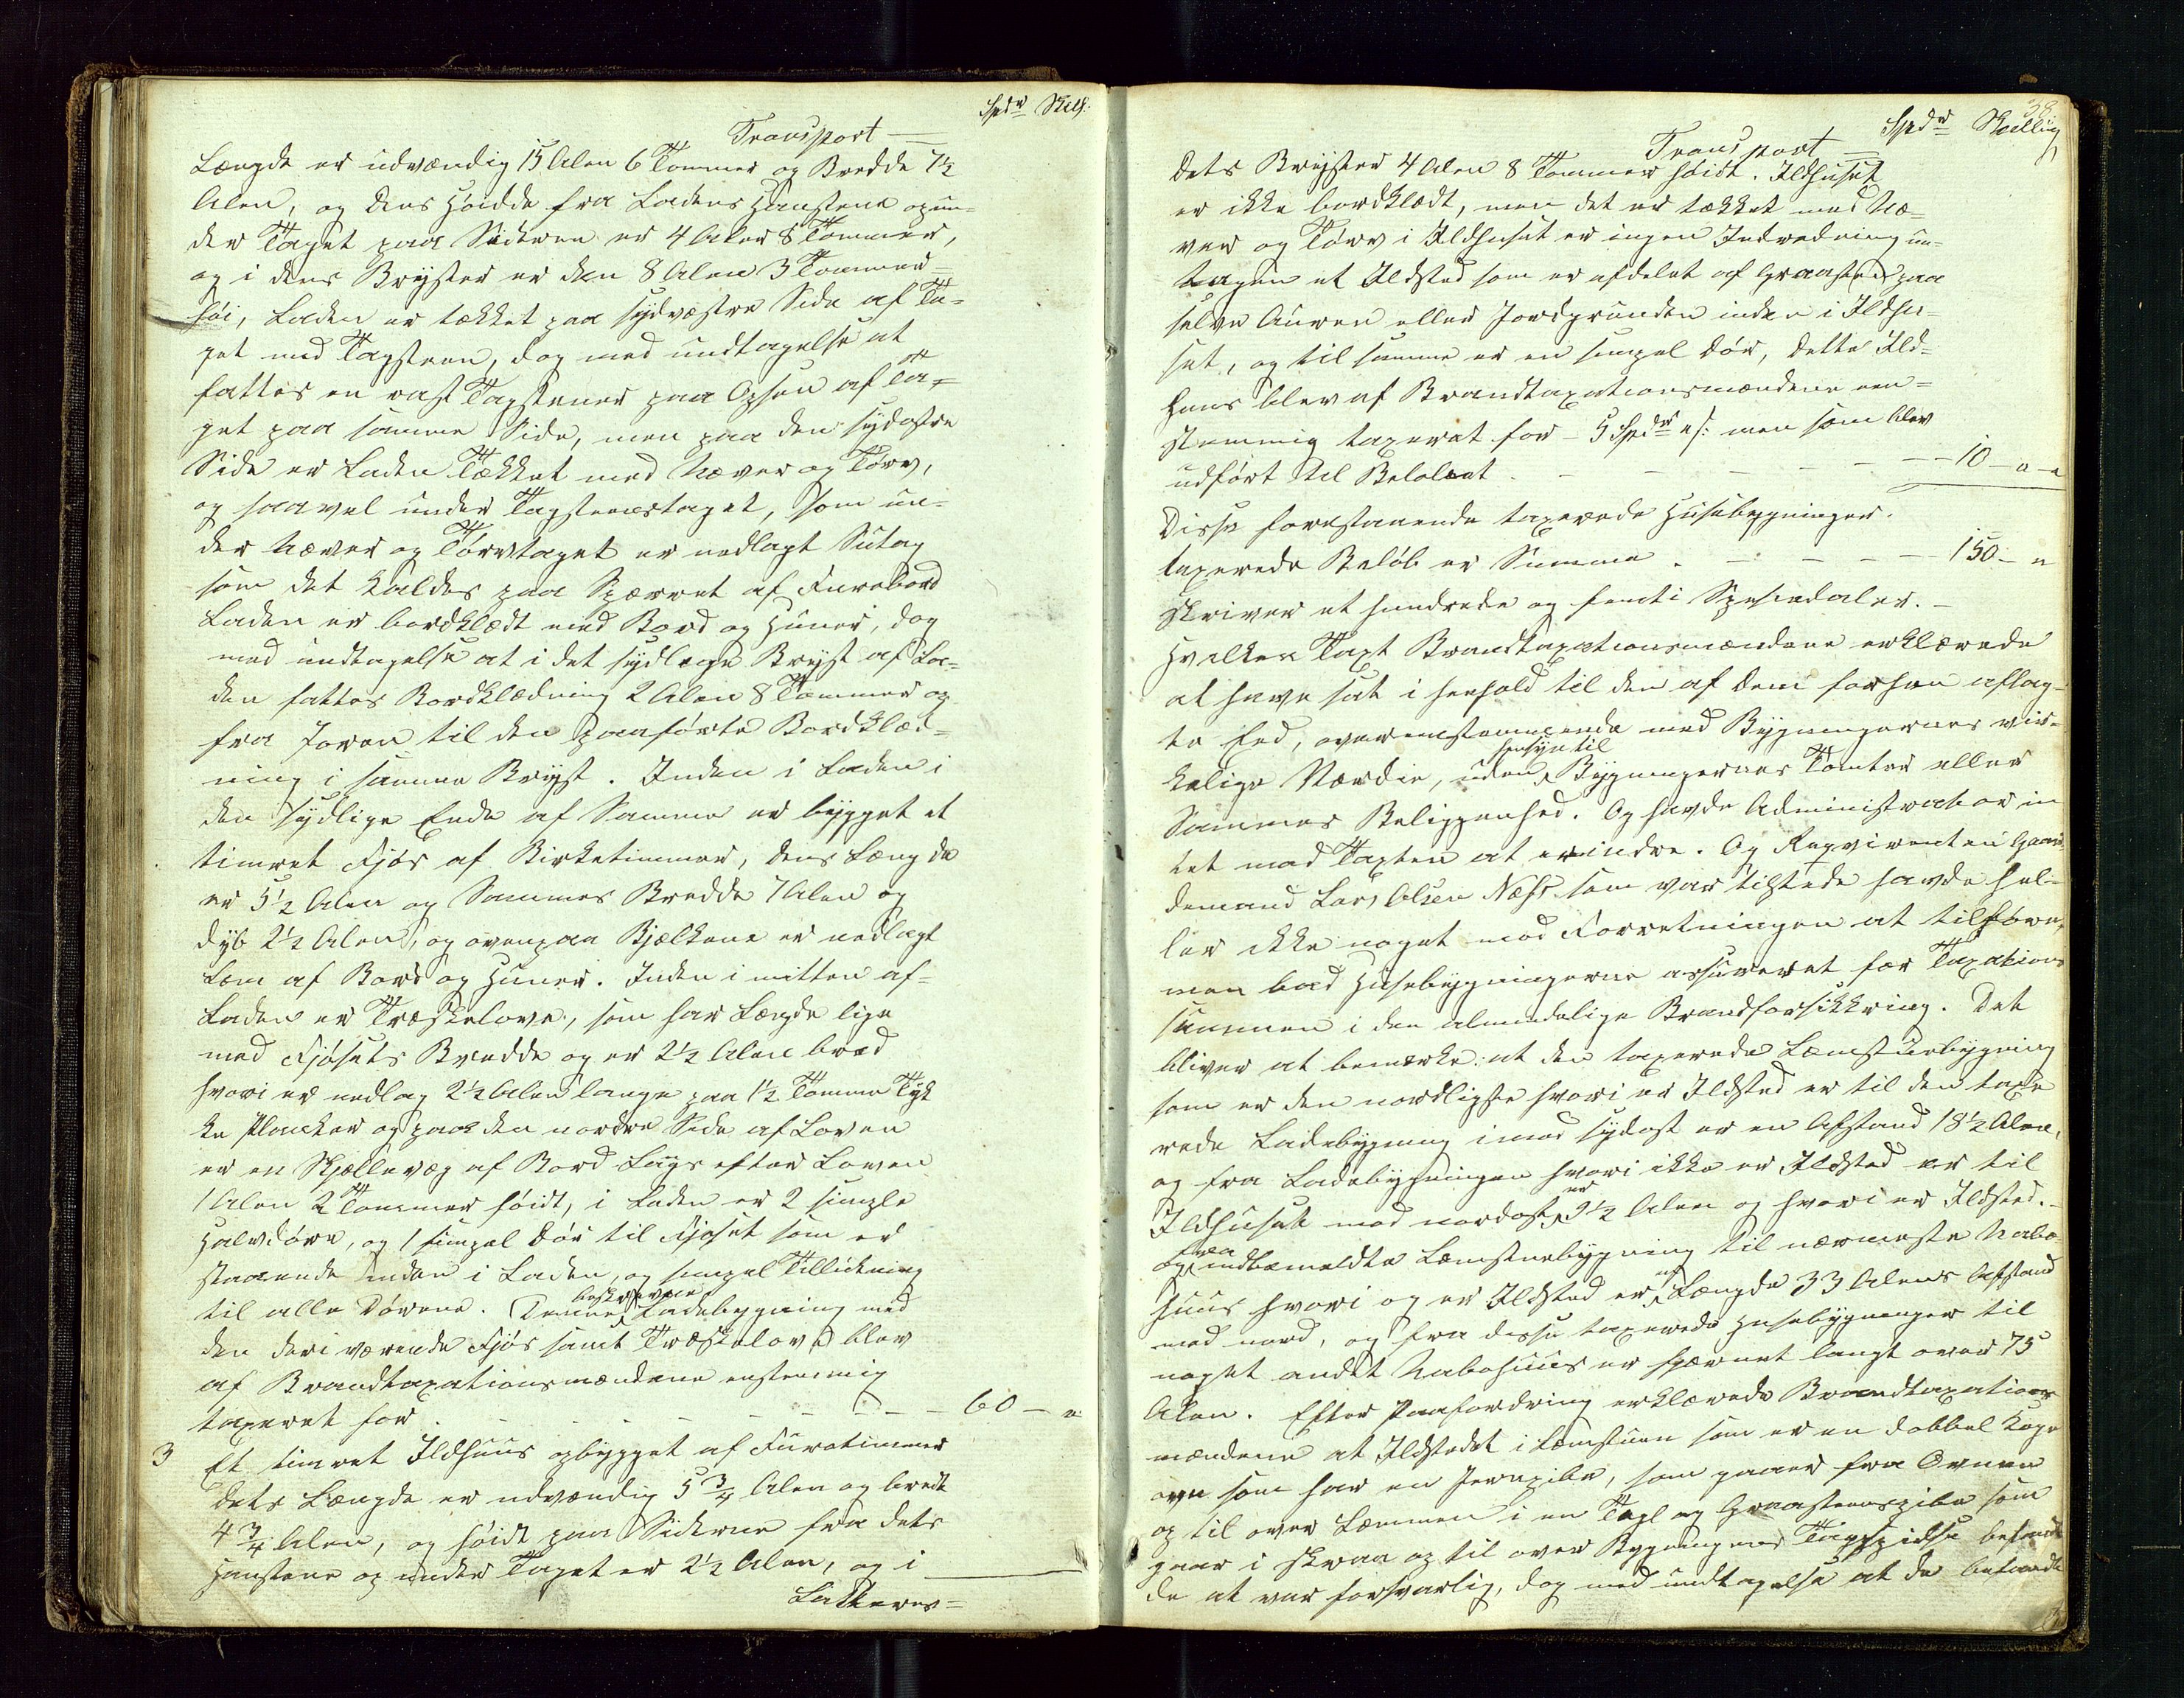 Spdr Skilg:
Transport —
Længde er udvændig 15 Alen 6 Tommer og Bredde 7½
Alen, og dens Høidde fra Ladens Haustene og un-
der Taget paa Siderne er 4 Alen 8 Tommer,
og i dens Bryster er den 8 Alen 3 Tommer
høi, Laden er tækket paa sydvæstre Side af Ta-
get med Tagsteen, dog med undtagelse at
fattes en rast Tagstener paa Opsen af Ta-
get paa samme Side, men paa den sydøstre
Side er Laden Tækket med Næver og Torv,
og saavel under Tagsteenstaget, som un-
der Næver og Torvtaget er nedlagt Sutag
som det kaldes paa Sperret af Furebord
Laden er bordklædt med Bord og Huner, dog
med undtagelse at i det sydlige Bryst af La-
den fattes Bordklædning 2 Alen 8 Tommer op
fra Joren til den paaførte Bordklæd-
ning i samme Bryst. Inden i Laden i
den sydlige Ende af Samme er bygget et
timret Fjøs af Birketimmer, dens Længde
er 5½ Alen og Sammes Bredde 7 Alen og
dyb 2½ Alen, og ovenpaa Bjelkene er nedlagt
Lem af Bord og Huner. Inden i mitten af
Laden er Træskelove, som har Længde lige
med Fjøsets Bredde og er 2½ Alen bred
hvori er nedlag 2½ Alen lange paa 1½ Tomme Tyk
ke Plancker og paa den nordre Side af Loven
er en Skjellevæg af Bord Langs efter Loven
1 Alen 2 Tommer høidt, i Laden er 2 simple
Halvdøre, og 1 simpel Dør til Fjøset som er
staaende inden i Laden, og simpel Tillukning
til alle Dørene. Denne beskrevne Ladebygning med
den deri værende Fjøs samt Træskelove blev
af Brandtaxationsmændene enstemmig
taxeret for . - - - - - - - 60 - "
3 Et timret Ildhuus opbygget af Furetimmer
dets Længde er udvændig 5 3/4 Alen og bredt
4 3/4 Alen, og høidt paa Siderne fra dets
Haustene og under Taget er 2½ Alen, og i
Latteres=
38
Spdr Skilling
Transport —
dets Bryster 4 Alen 8 Tommer høidt. Ildhuset
er ikke bordklædt, men det er tækket med Næ-
ver og Torv i Ildhuset er ingen Indredning un-
tagen et Ildsted som er afdelet af Graasten paa
selve Auren eller Jordgrunden inden i Ildhu-
set, og til samme er en simpel Dør, dette Ild-
huus blev af Brandtaxationsmændene een-
stemmig taxeret for - 5 Spdr /: men som blev
udført til Beløbet . - - - - - 10 - " - "
Disse forestaaende taxerede Husebygninger.
taxerede Beløb er Summa . - - - - 150 - "
skriver et hundrede og femti Spesiedaler. -
Hvilken Taxt Brandtaxationsmændene erklærede
at have sat i henhold til den af dem forhen aflag-
te Eed, overensstemmende med Bygningernes vir-
kelige Værdie, uden hensyn til Bygningernes Tomter eller
Sammes Beliggenhed. Og havde Administrator in
tet mod Taxten at erindre. Og Reqvirenten Gaar-
demand Lars Olsen Næss som var tilstede havde hel-
ler ikke noget mod Forretningen at tilføre,
men bad Husebygningerne assureret for Taxations
summen i den almindelige Brandforsikkring. Det
bliver at bemerke: at den taxerede Læmstuebygning
som er den nordligste hvori er Ildsted er til den taxe
rede Ladebygning imod sydost er en Afstand 18½ Alen,
og fra Ladebygningen hvori ikke er Ildsted er til
Ildhuset mod nordost er 9½ Alen og hvori er Ildsted. -
Og fra indbemeldte Læmstuebygning til nærmeste Nabo-
huus hvori og er Ildsted er en Længde 33 Alens Afstand
mod nord, og fra disse taxerede Husebygninger til
noget andet Nabohuus er fjærnet langt over 75
Alen. Efter Paafordring erklærede Brandtaxations
mændene at Ildstedet i Læmstuen som er en dobbel Koge
ovn som har en Jernpibe, som gaaer fra Ovnen
op til over Lemmen i en Tegl og Graasteenspibe som
gaar i skraa op til over Bygningens Tagspidse befand
de at var forsvarlig, dog med undtagelse at de befandt